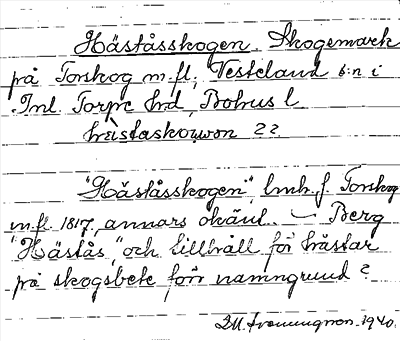 Häståsskogen. Skogsmark
på Torskog m.fl, Västerland s:n i
Inl. Torpe hd, Bohus l.
hästaskouwon 22.
"Häståsskogen", lmh. f. Torskog
m.fl. 1817, annars okänt. — Berg
"Hästås" och tillhåll för hästar
på skogsbete förr namngrund?
1940.